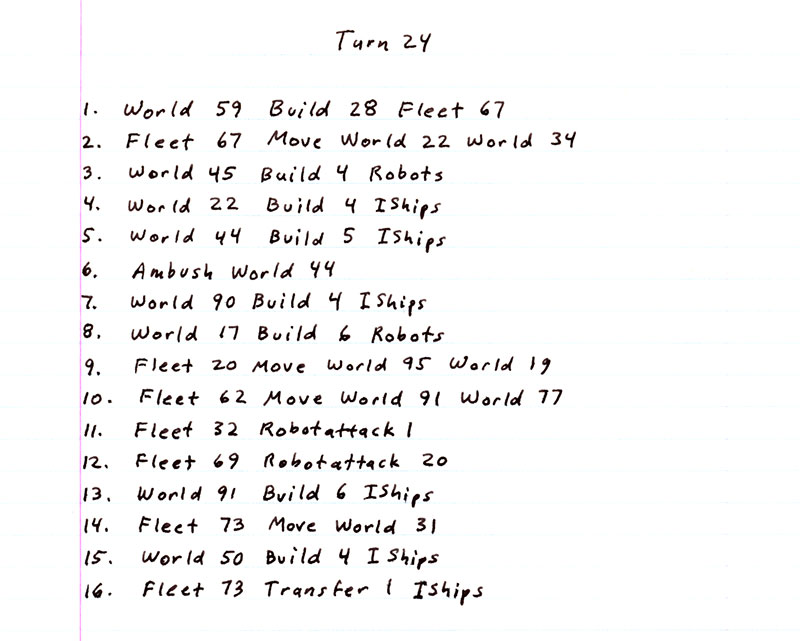 Turn 24
1. World 59 Build 28 Fleet 67
2. Fleet 67 Move World 22 World 34
3. World 45 Build 4 Robots
4. World 22 Build 4 IShips
5. World 44 Build 5 IShips
6. Ambush World 44
7. World 90 Build 4 IShips
8. World 17 Build 6 Robots
9. Fleet 20 Move World 95 World 19
10. Fleet 62 Move World 91 World 77
11. Fleet 32 Robotattack 1
12. Fleet 69 Robotattack 20
13. World 91 Build 6 IShips
14. Fleet 73 Move World 31
15. World 50 Build 4 IShips
16. Fleet 73 Transfer 1 IShips